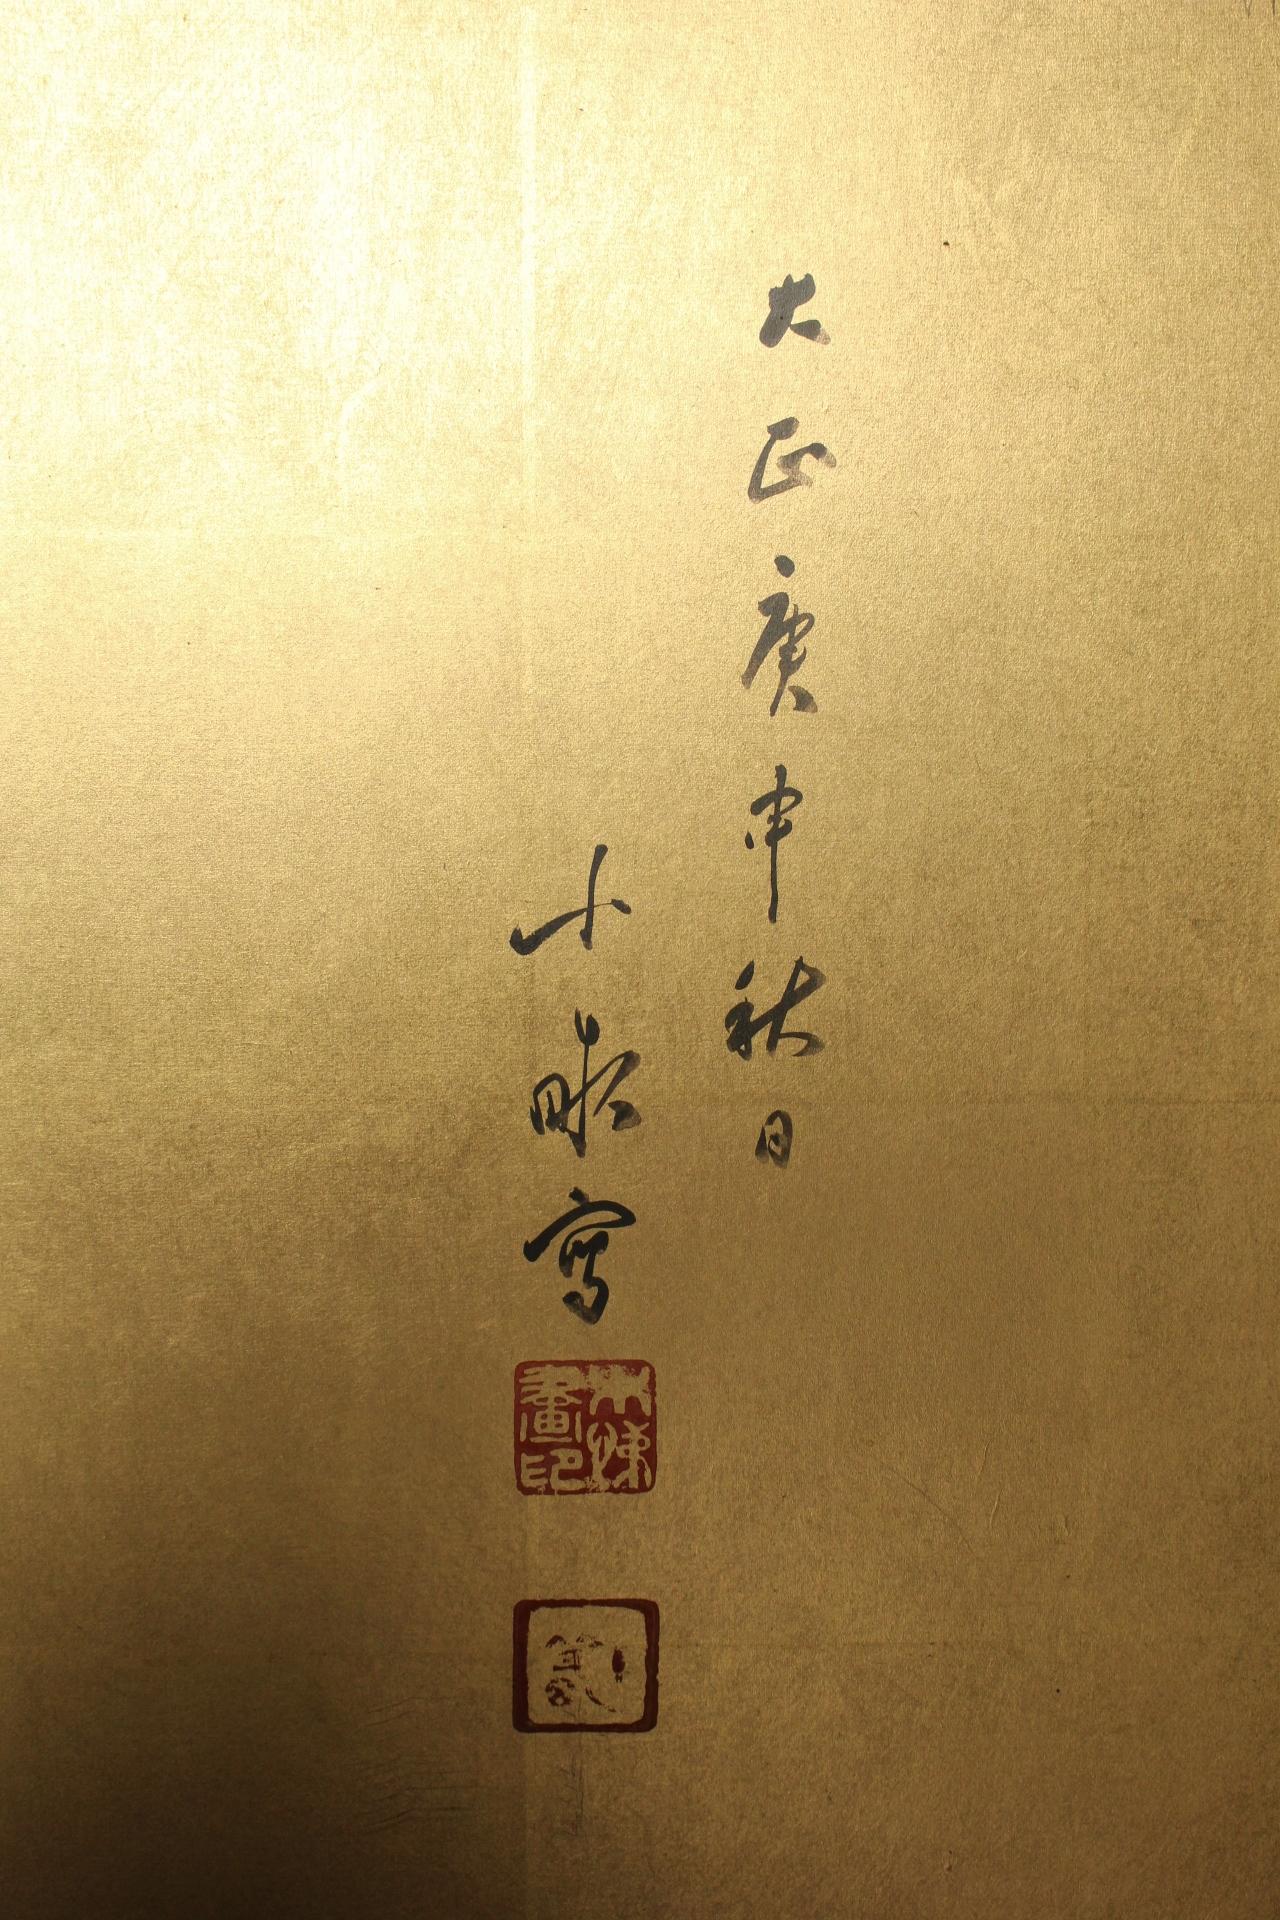 大正庚申秋日
小 寫
小
畫印